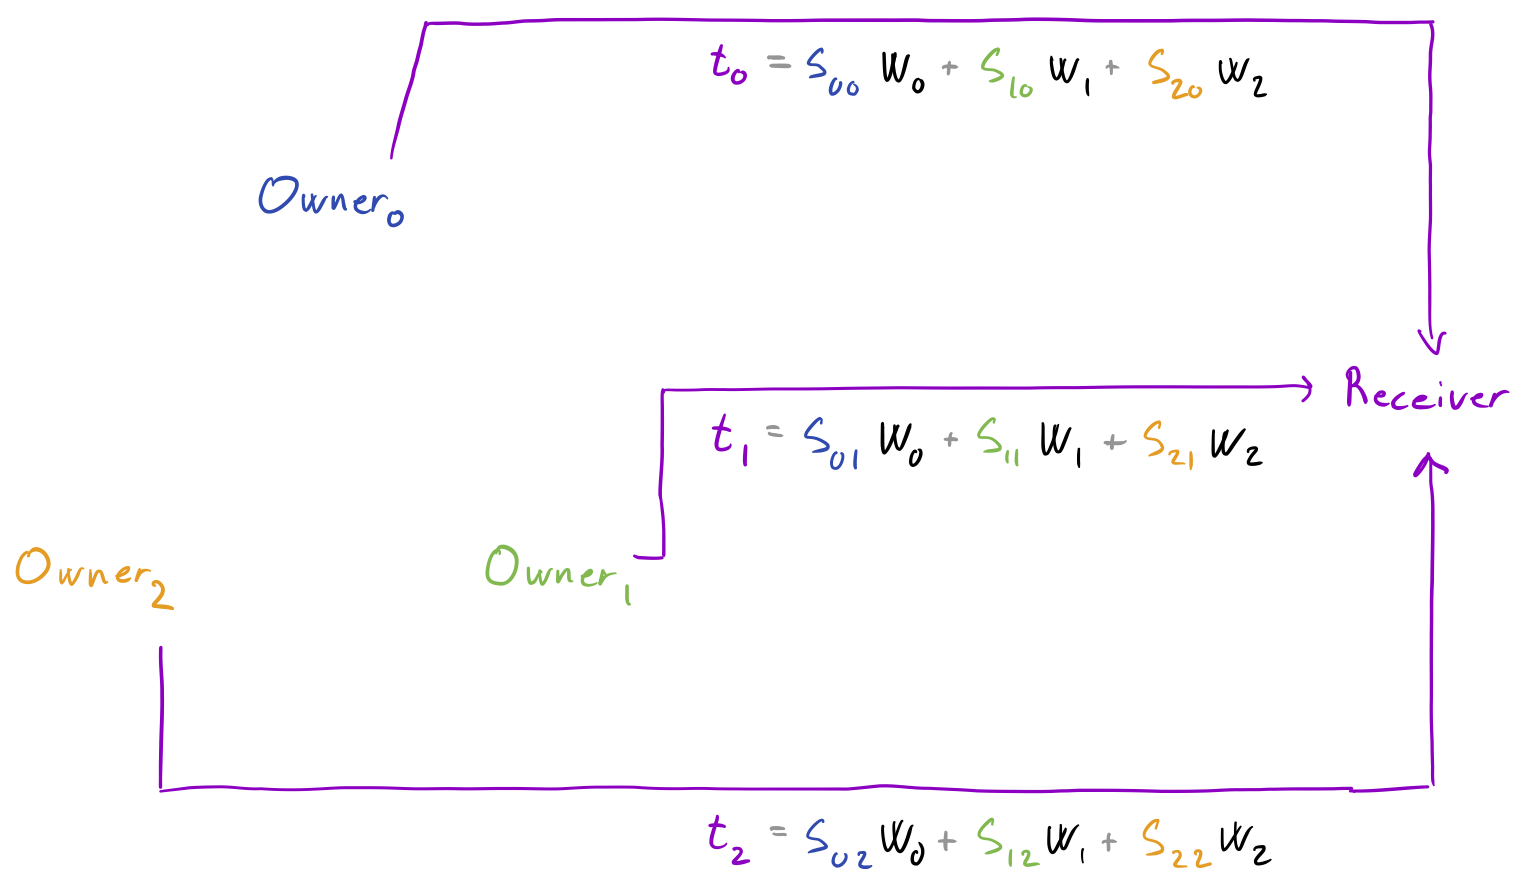 t₀ = S₀₀ W₀ + S₁₀ W₁ + S₂₀ W₂
Owner₀
Receiver
t₁ = S₀₁ W₀ + S₁₁ W₁ + S₂₁ W₂
Owner₂ Owner₁
t₂ = S₀₂ W₀ + S₁₂ W₁ + S₂₂ W₂